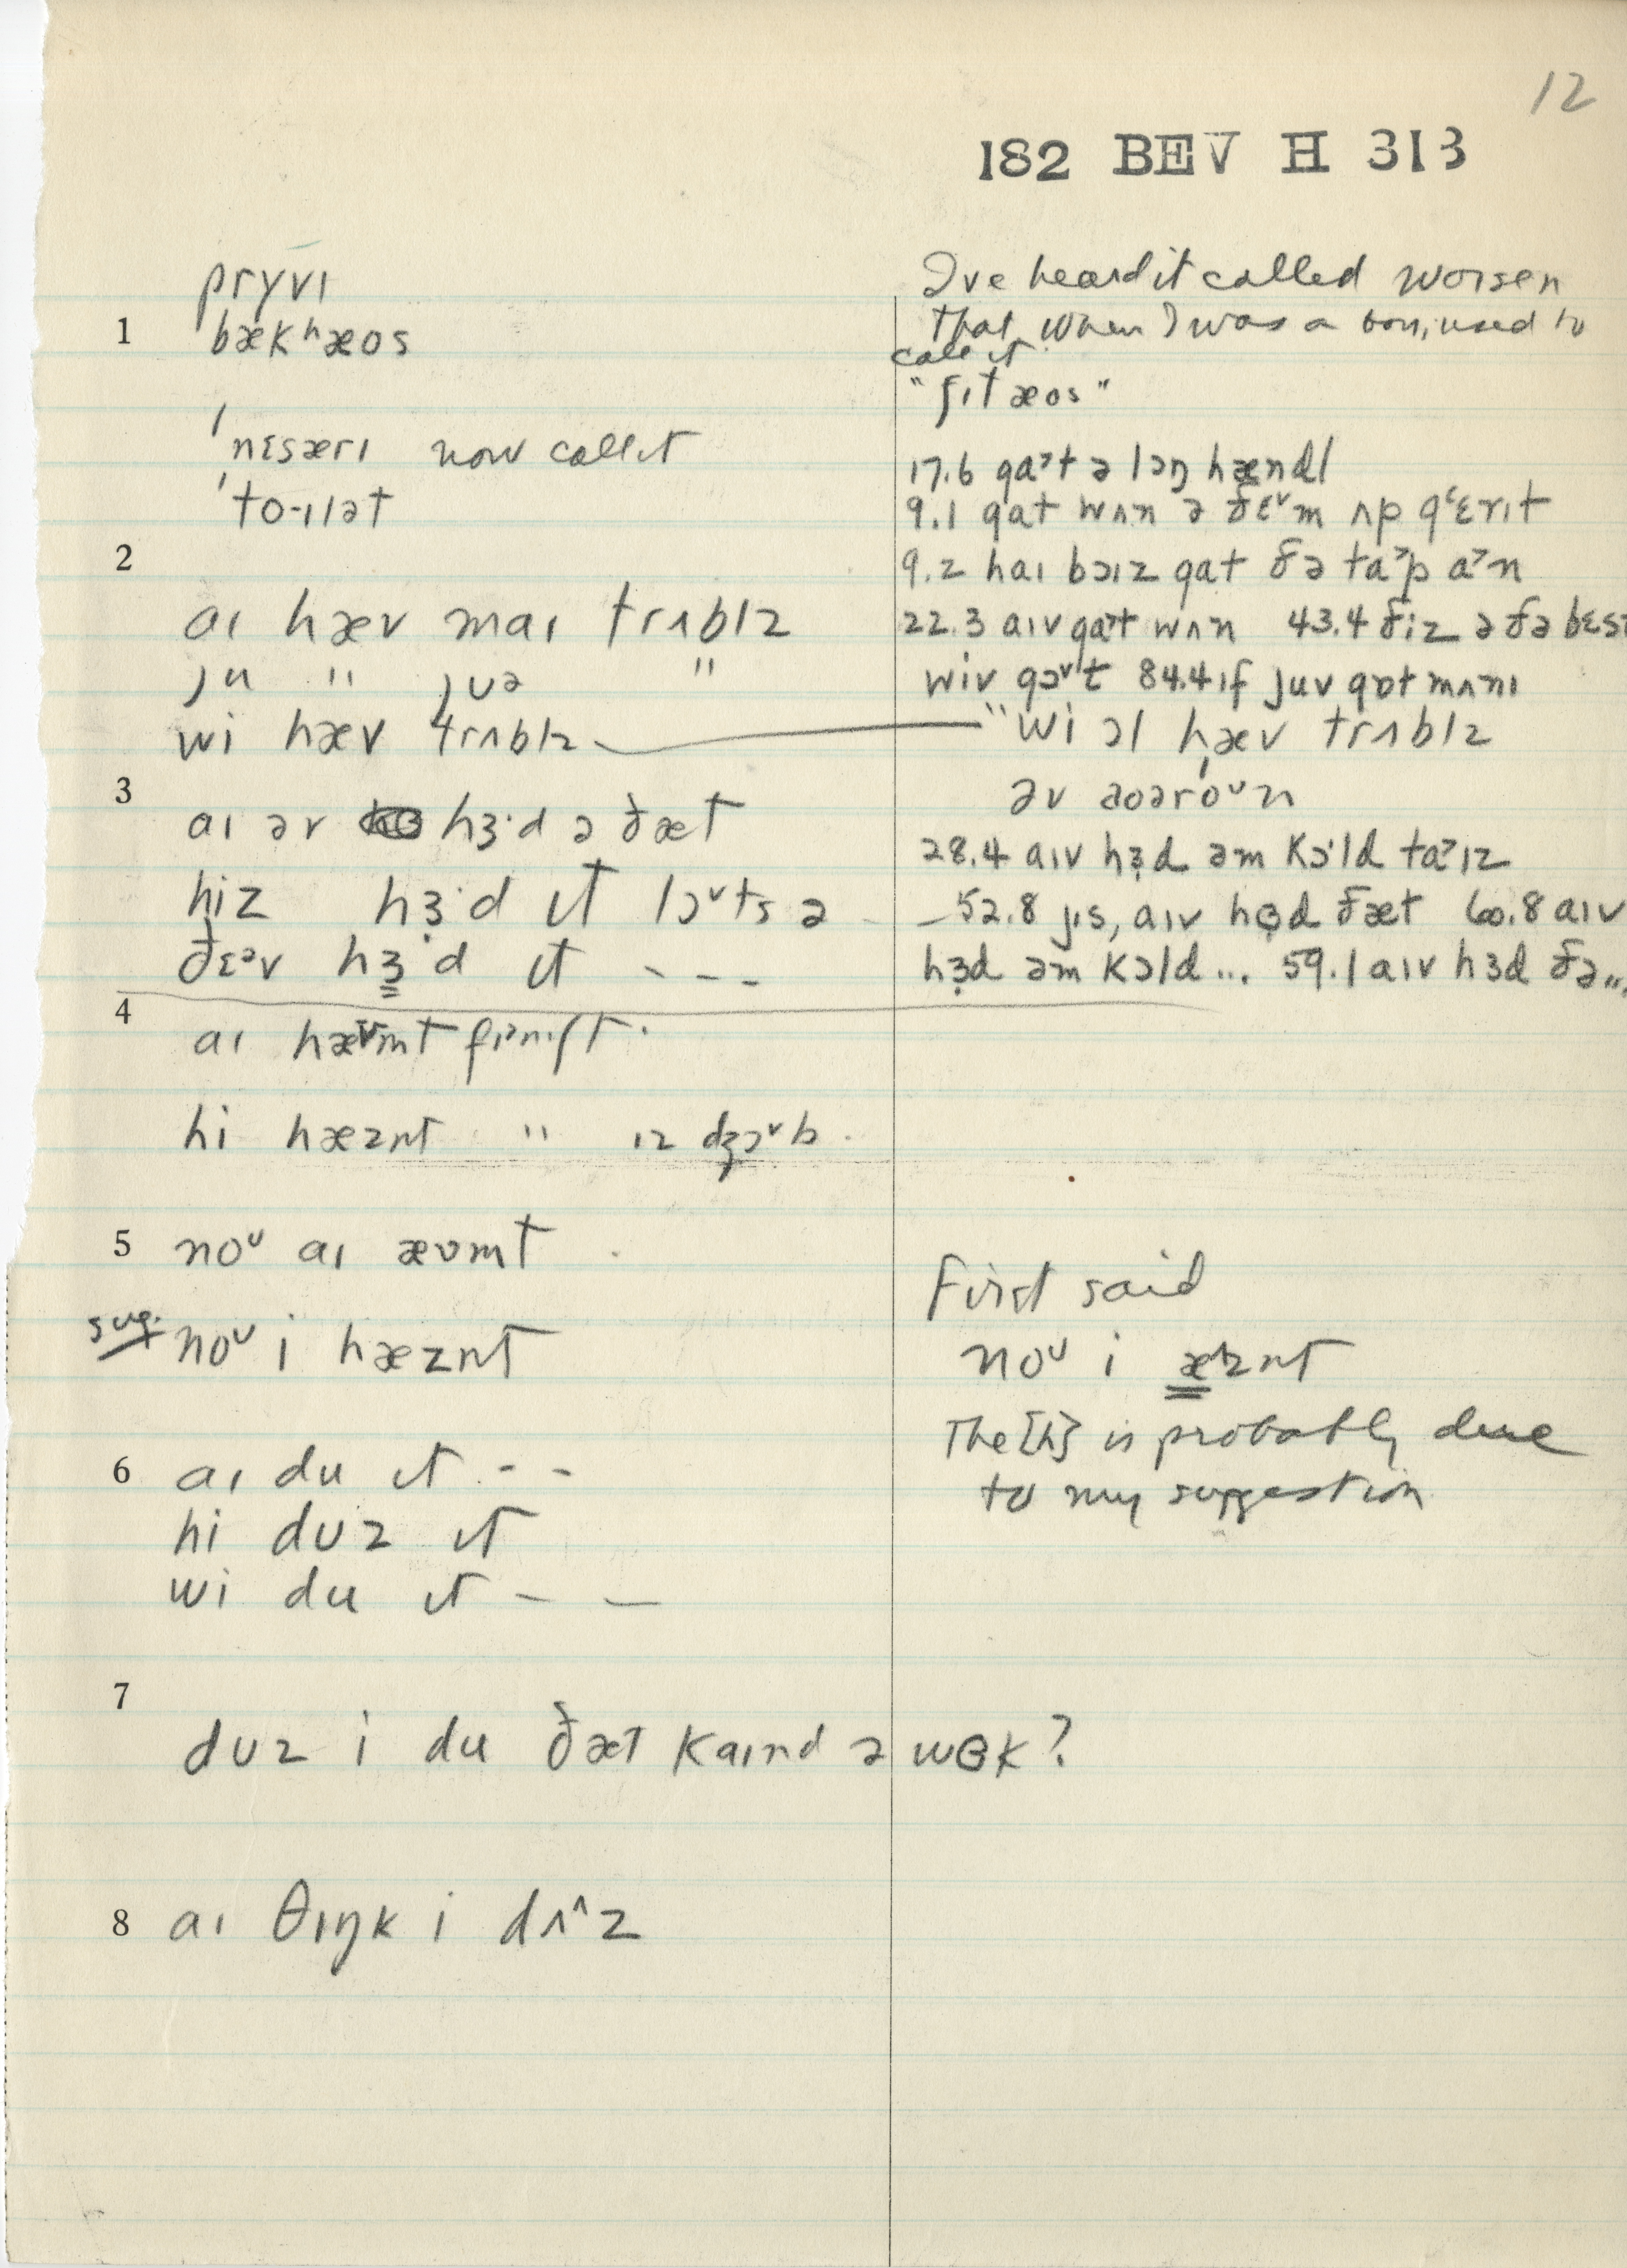 12
182 BEV H 313
prɣvɪ
1 bækʰæos
'nɛsærɪ now call it
'to-ɪlət
I've heard it called worsen
that, when I was a boy, used to
call it
"ʃɪtæos"
17.6 gaˀt ə lɔŋ hændl
9.1 gat wʌn ə ðɛᵛm ʌp gʻɛrɪt
9.2 haɪ bɔɪz gat ðə taˀp aˀn
22.3 aɪv gaˀt wʌn 43.4 ðiz ə ðə bɛst
wiv gɔᵛt 84.4 ɪf juv gɒt mʌnɪ
2
aɪ hæv maɪ trʌblz
ju " jʊə "
wi hæv trʌblz
"wi ɔl hæv trʌblz
əv aoəróᵘn
3 aɪ əv hɜ·d ə ðæt
hiz hɜ̣·d ɪt lɔᵛts ə
ðɛəv hɜd ɪt - - -
28.4 aɪv hɜ̣d əm kɔ·ld taˀɪz
– 52.8 jɪs, aɪv hɞ̣d ðæt 60.8 aɪv
hɜ̣d əm kɔld ... 59.1 aɪv hɜd ðə...
4 aɪ hævnt fɪnɪʃt
hi hæznt " ɪz dʒɔᵛb
5 noᵘ aɪ ævmt
sug. noᵘ i hæznt
First said
noᵘ i æznt
The [h] is probably due
to my suggestion
6 aɪ du ɪt - -
hi dʊz ɪt
wi du ɪt – –
7
dʊz i du ðæt kaɪnd ə wɞk?
8 aɪ θɪŋk i dʌ^z